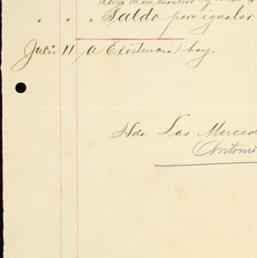 " " " Saldo para igualar
Julio 11 A Existencia hoy
Hda. Las Merced
Antonio